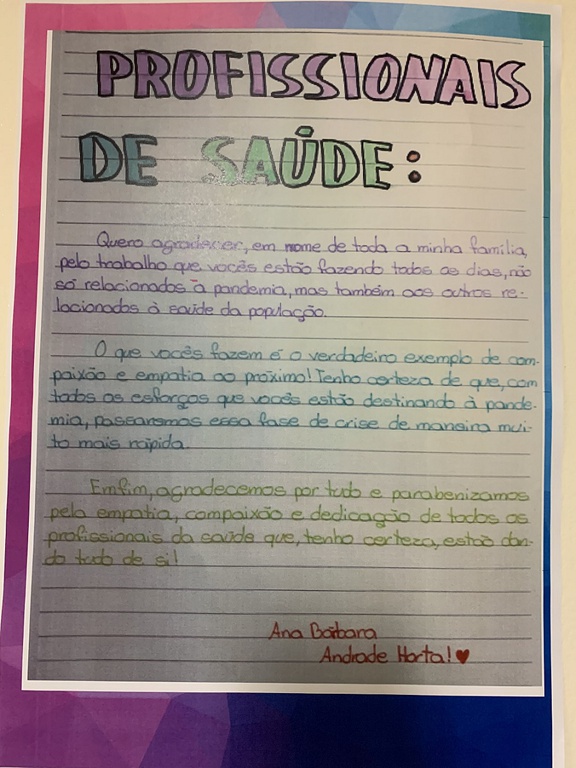 PROFISSIONAIS
DE SAÚDE:
Quero agradecer, em nome de toda a minha família,
pelo trabalho que vocês estão fazendo todos os dias, não
só relacionados à pandemia, mas também aos outros re-
lacionados à saúde da população.
O que vocês fazem é o verdadeiro exemplo de com-
paixão e empatia ao próximo! Tenho certeza de que, com
todos os esforços que vocês estão destinando à pande-
mia, passaremos essa fase de crise de maneira mui-
to mais rápida.
Enfim, agradecemos por tudo e parabenizamos
pela empatia, compaixão e dedicação de todos os
profissionais da saúde que, tenho certeza, estão dan-
do tudo de si!
Ana Bárbara
Andrade Horta! ♥